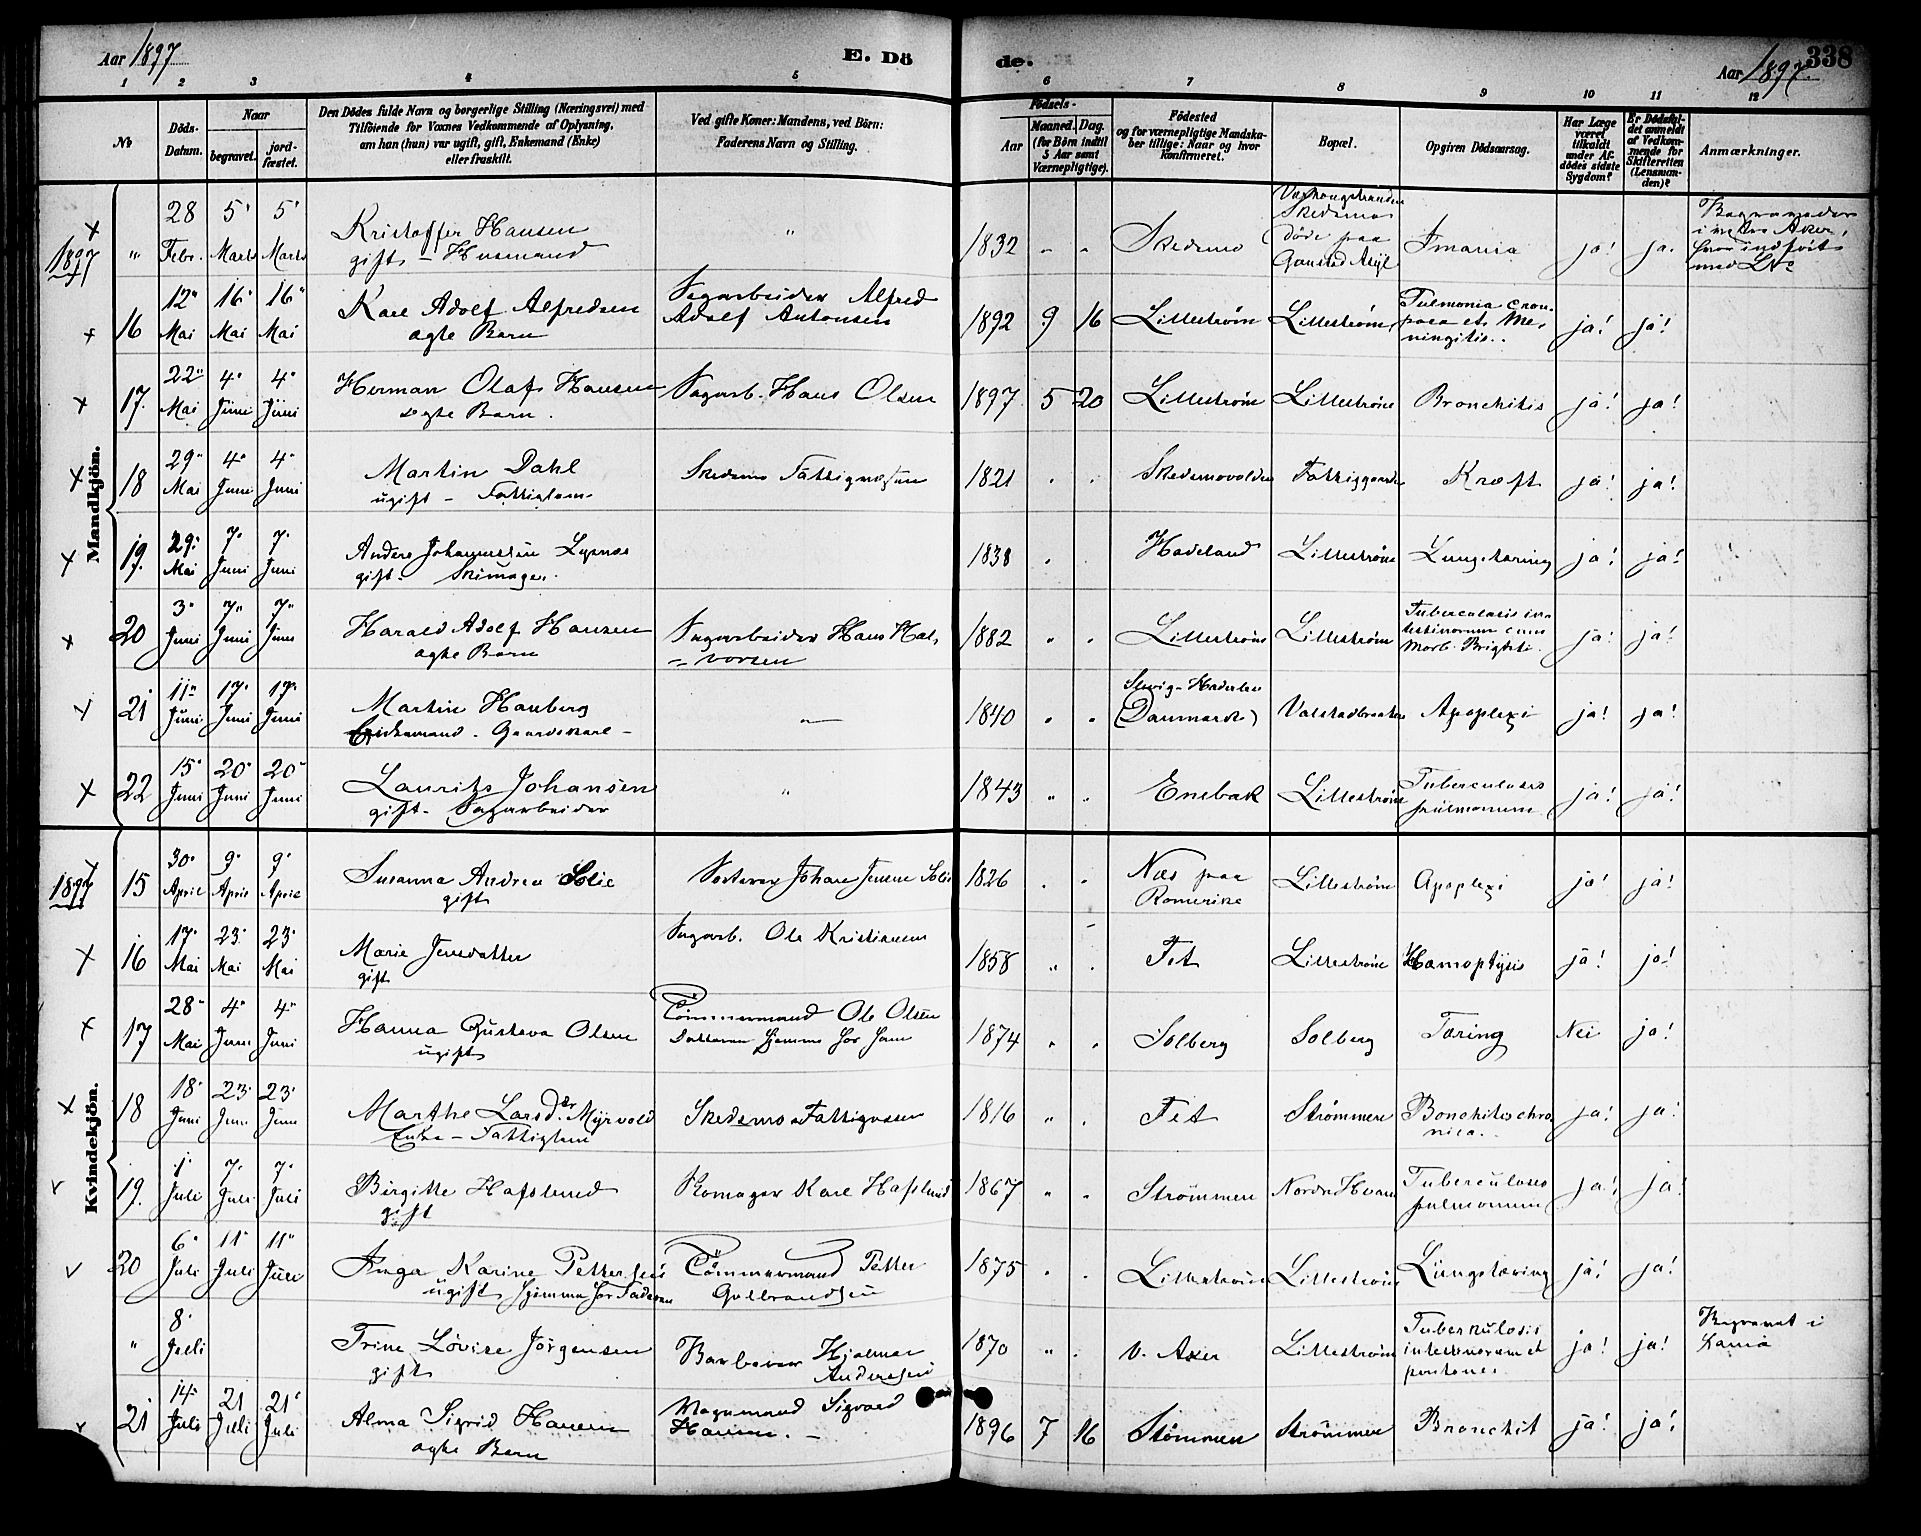 Aar 1897 E. Dö
de. Aar 1897. 338
1 2 3 4 5 6 7 8 9 10 11 12
No
Döds-Datum.
Naar
begravet.
jord-fæstet.
Den Dödes fulde Navn og borgerlige Stilling (Næringsvei) med
Tilföiende for Voxnes Vedkommende af Oplysning,
om han (hun) var ugift, gift, Enkemand (Enke)
eller fraskilt.
Ved gifte Koner: Mandens, ved Börn:
Faderens Navn og Stilling.
Födsels-
Aar
Maaned. Dag.
(for Börn indtil
5 Aar samt
Værnepligtige).
Födested
og for værnepligtige Mandska-
ber tillige: Naar og hvor
konfirmeret.
Bopæl.
Opgiven Dödsaarsag.
Har Læge
været
tilkaldt
under Af-
dödes sidste
Sygdom?
Er Dödsfal-
det anmeldt
af Vedkom-
mende for
Skifteretten
(Lensman-
den)?
Anmærkninger.
Mandkjön.
1897 " 28 Febr. 5' Marts 5' Marts Kristoffer Hansen
gift - Husmand " 1832 " " Skedsmo Skedsmo
døde paa
Gaustad Asyl Imania ja! ja.
i vestre Aker,
hvor indført
med LNo
16 12" Mai 16' Mai 16" Mai Karl Adolf Alfredsen
ægte Barn Sagarbeider Alfred
Adolf Antonsen 1892 9 16 Lillestrøm Lillestrøm ja! ja!
17. 22" Mai 4' Juni 4' Juni Herman Olaf Hansen
ægte Barn. Sagarb. Hans Olsen 1897 5 20 Lillestrøm Lillestrøm Bronchitis ja! ja!
18 29" Mai 4' Juni 4' Juni Martin Dahl
ugift - Fattiglem Skedsmo Fattigvæsen 1821 Kræft ja! ja!
19. 29' Mai 7' Juni 7' Juni Anders Johannessen
gift. 1838 Hadeland Lillestrøm Lungetæring ja! ja!
20 3' Juni 7" Juni 7" Juni Harald Adolf Hansen
ægte Barn Sagarbeider Hans Hal-
vorsen 1882 " " Lillestrøm Lillestrøm Tuberculosis in-
testinorum cum
Morb. Brightii ja! ja!
21 11" Juni 17' Juni 17' Juni Martin Hauberg
Enkemand - Gaardskarl - 1840 (Danmark) Apoplexi ja! ja!
22 15' Juni 20' Juni 20' Juni Laurits Johansen
gift - Sagarbeider " 1843 " " Enebak Lillestrøm Tuberculosis
pulmonum ja! ja!
Kvindekjön.
1897 15 30' April 9' April 9' April Susanna Andrea Solie
gift Johan Jensen Solie 1826 Næs paa
Romerike Lillestrøm Apoplexi ja! ja!
16 17' Mai 23' Mai 23' Mai Marie Jensdatter
gift Sagarb. Ole Kristiansen 1858 " Fet Lillestrøm Hæmoptysis ja! ja!
17 28' Mai 4' Juni 4" Juni Hanna Gustava Olsen
ugift Tömmermand Ole Olsen
Datteren hjemme hos ham 1874 Solberg Solberg Tæring Nei ja!
18 18' Juni 23' Juni 23' Juni Marthe Larsdtr. Myrvold
Enke - Fattiglem Skedsmo Fattigvæsen 1816 " Fet Strømmen Bonchitis chro
nica. ja! ja!
19. 1' Juli 7' Juli 7' Juli Birgitte Hafslund
gift Skomager Karl Hafslund 1867 " " Strömmen Nordre Hvam Tuberculosis
pulmonum ja! ja!
20 6' Juli 11' Juli 11" Juli Inga Karine Pettersen
ugift hjemme hos Faderen Tömmermand Petter
Gulbrandsen 1875 Lillestrøm Lillestrøm Lungetæring ja! ja!
" 8' Juli Trine Lovise Jörgensen
gift Barberer Hjalmar
Andersen 1870 " V. Aker Lillestrøm Tuberkulosis
intestinorum et
peritonei ja! ja! Begravet i
Kania
21 14' Juli 21 Juli 21' Juli Alma Sigrid Hansen
ægte Barn Vognmand Sigvard
Hansen. - 1896 7 16 Stömmen Strömmen Bronchit ja! ja!